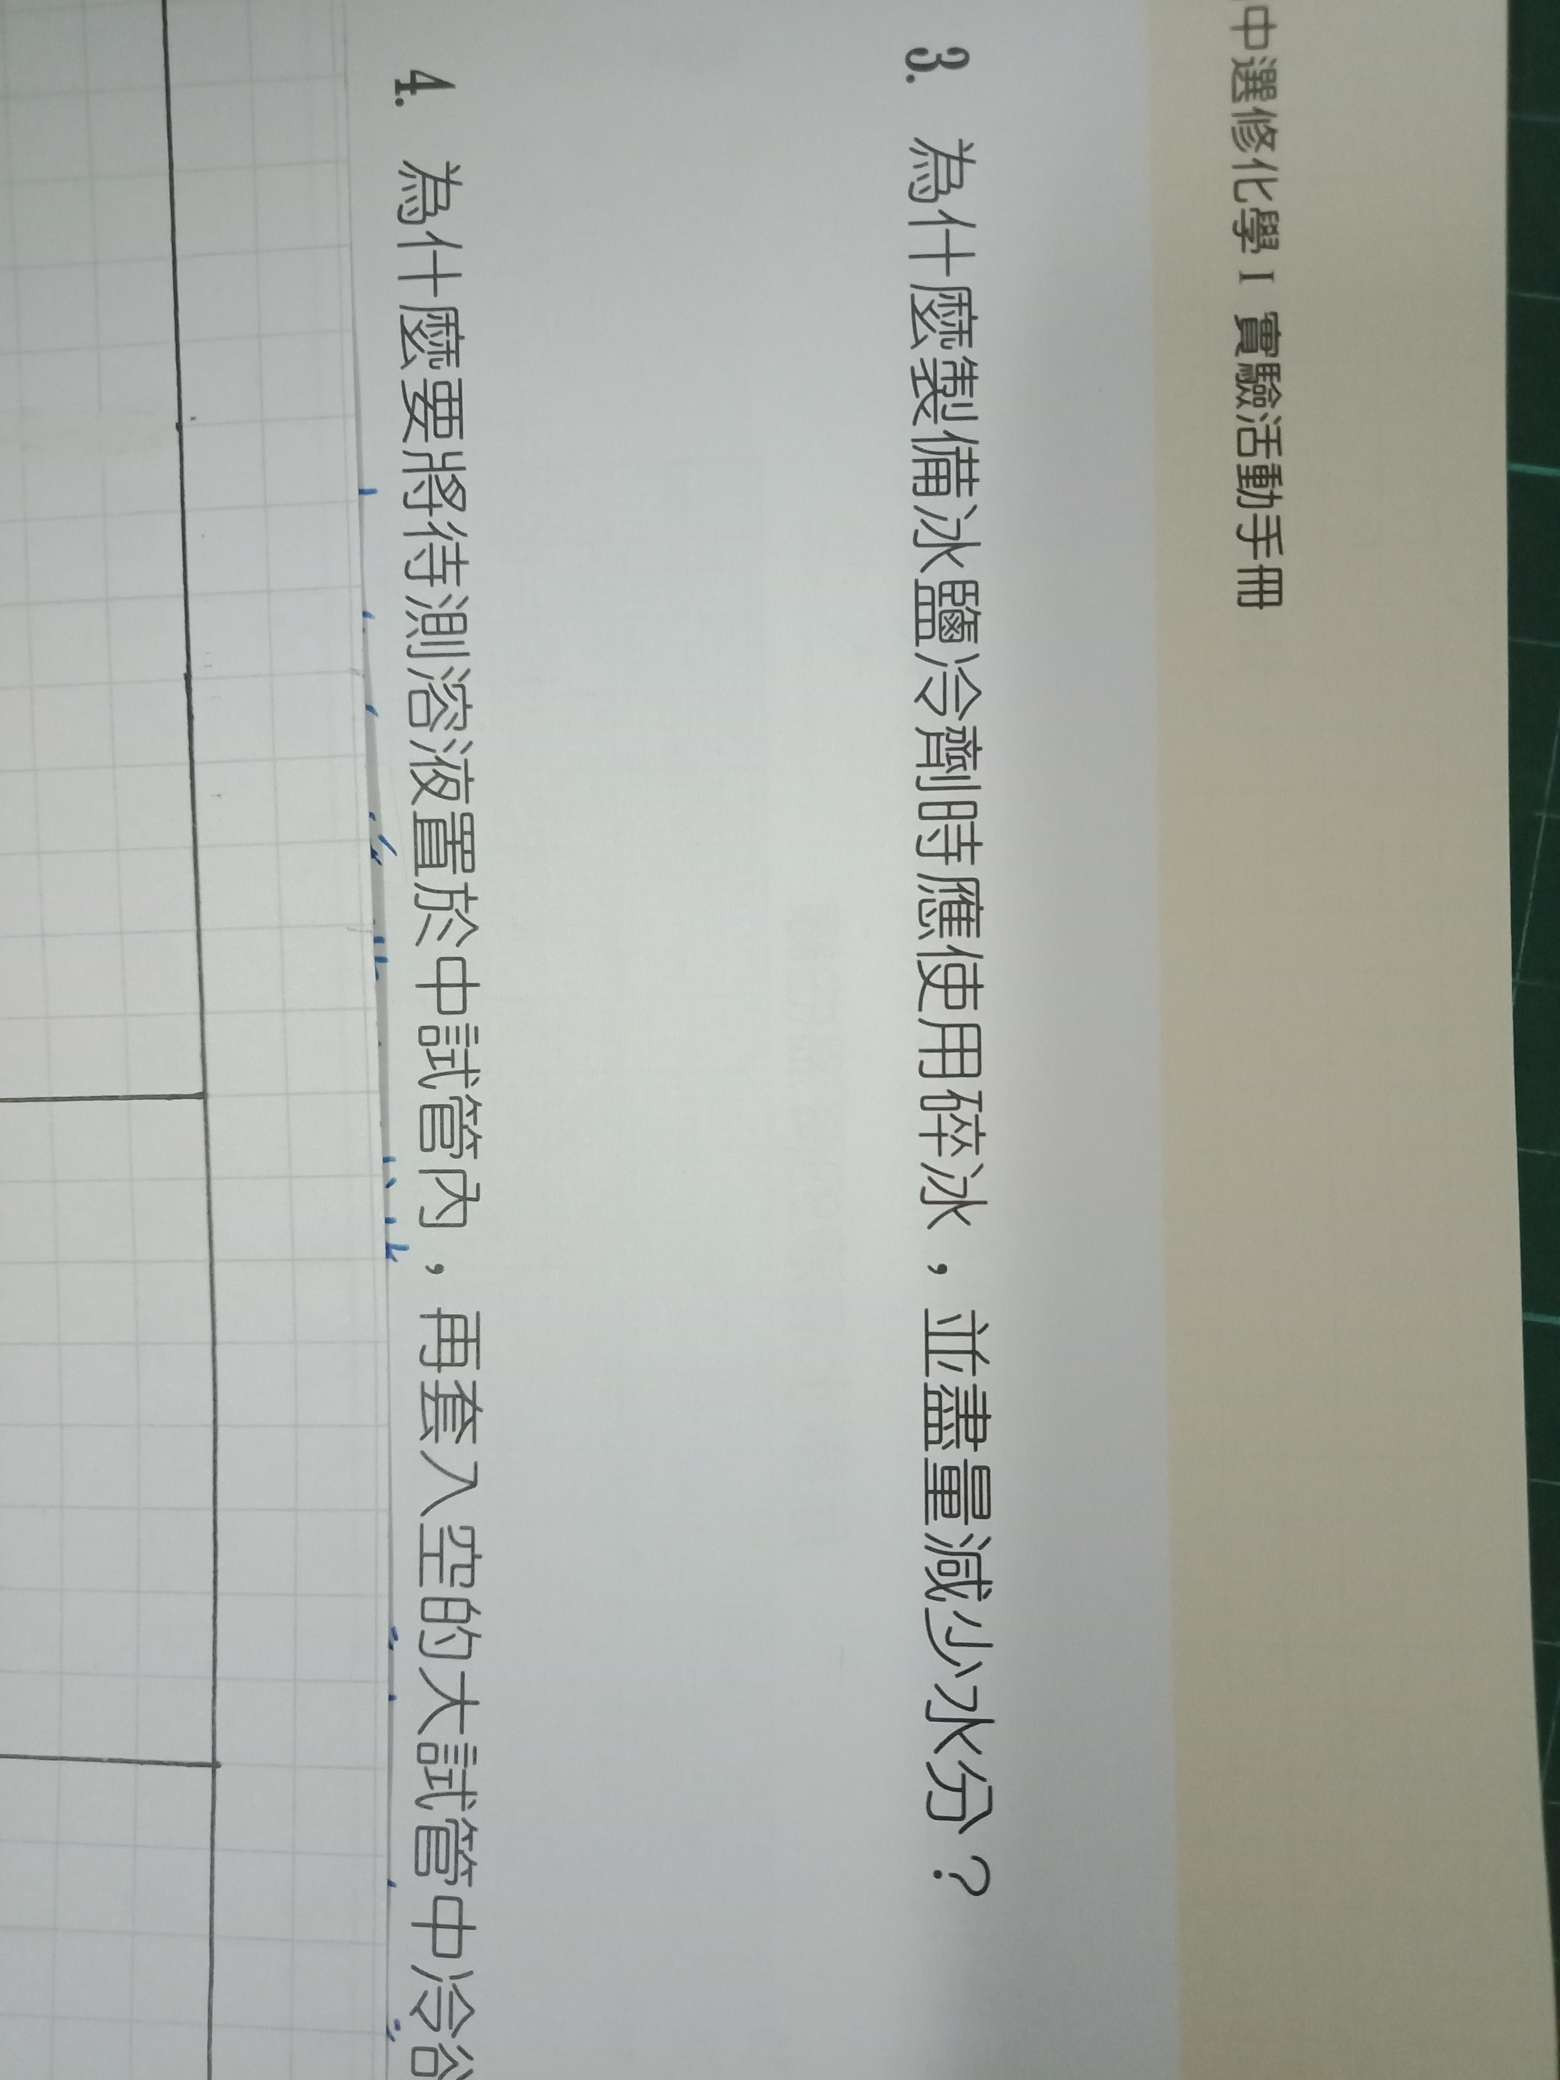 中選修化學 I 實驗活動手冊
3. 為什麼製備冰鹽冷劑時應使用碎冰，並盡量減少水分？
4. 為什麼要將待測溶液置於中試管內，再套入空的大試管中冷卻